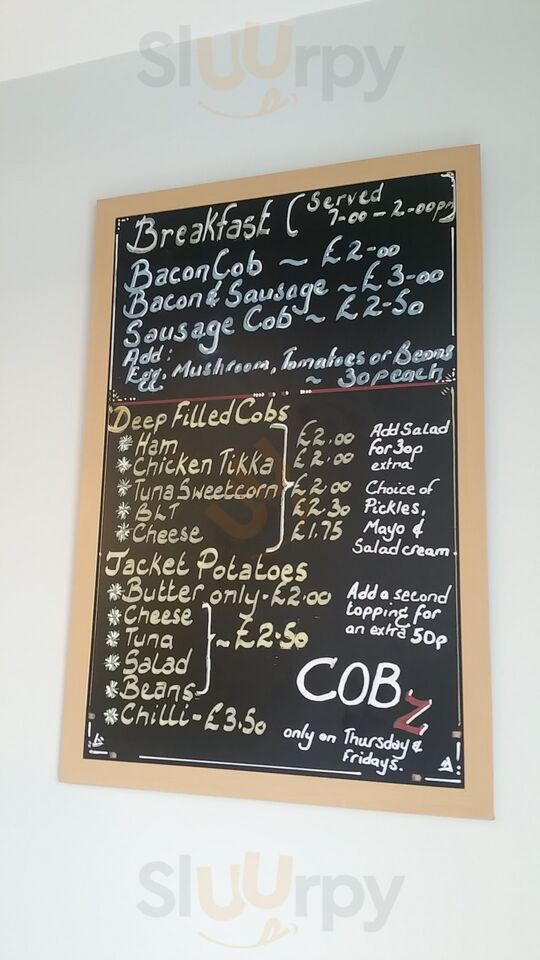 Sluurpy
Breakfast ( Served
7-00 - 2-00pm
Bacon Cob ~ £2-00
Bacon & Sausage ~ £3-00
Sausage Cob ~ £2-50
Add:
Egg, Mushroom, Tomatoes or Beans
~ 30p each
Deep Filled Cobs
* Ham £2.00
* Chicken Tikka £2.00
* Tuna Sweetcorn £2.00
* BLT £2.30
* Cheese £1.75
Add Salad
for 30p
extra
Choice of
Pickles,
Mayo &
Salad cream.
Jacket Potatoes
* Butter only - £2.00
* Cheese
* Tuna ~ £2.50
* Salad
* Beans
* Chilli - £3.50
Add a second
topping for
an extra 50p
COBZ
only on Thursday &
Fridays.
Sluurpy